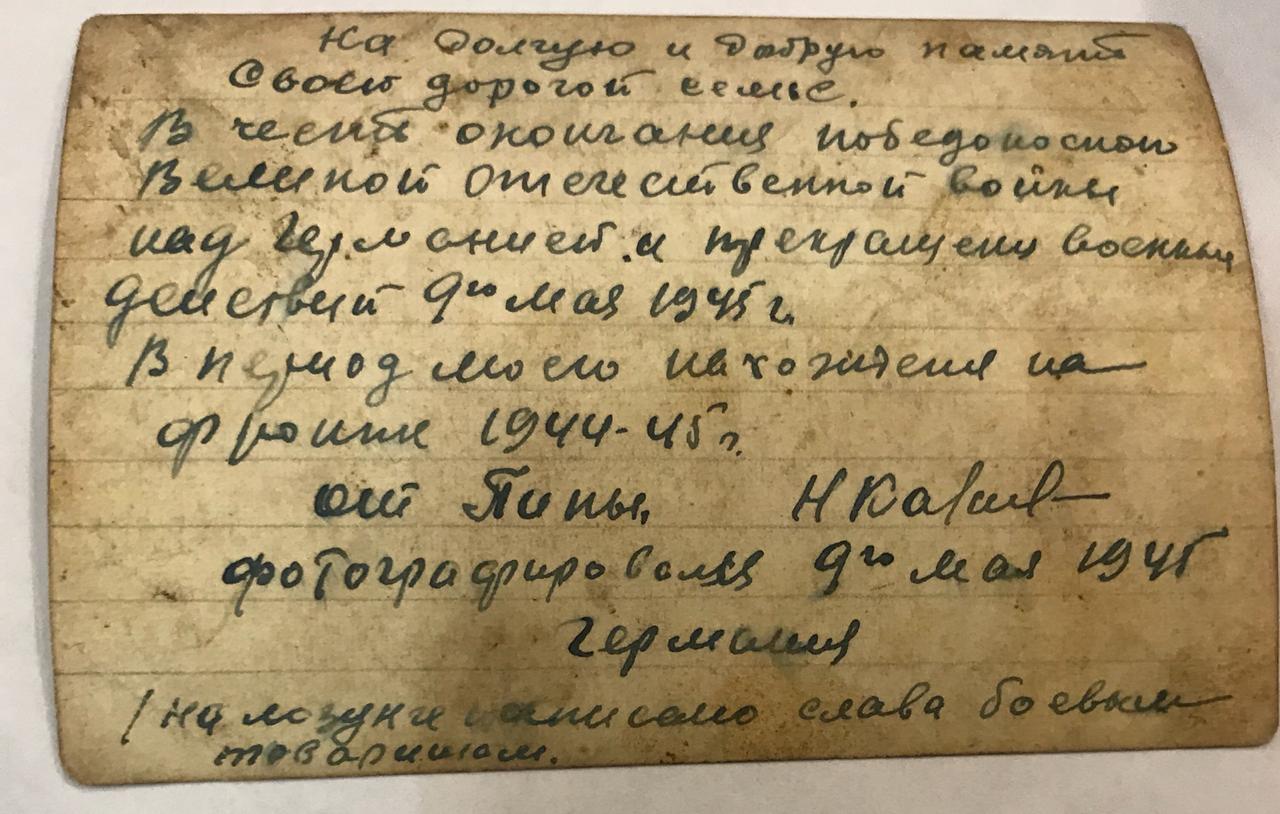 На долгую и добрую память
Своей дорогой семье.
В честь окончания победоносной
Великой Отечественной войны
над Германией и прекращения военных
действий 9го мая 1945 г.
В период моего нахождения на
фронте 1944-45 г.
от Папы. Н
фотографировался 9го мая 1945
Германия
/ на лозунге написано слава боевым
товарищам.